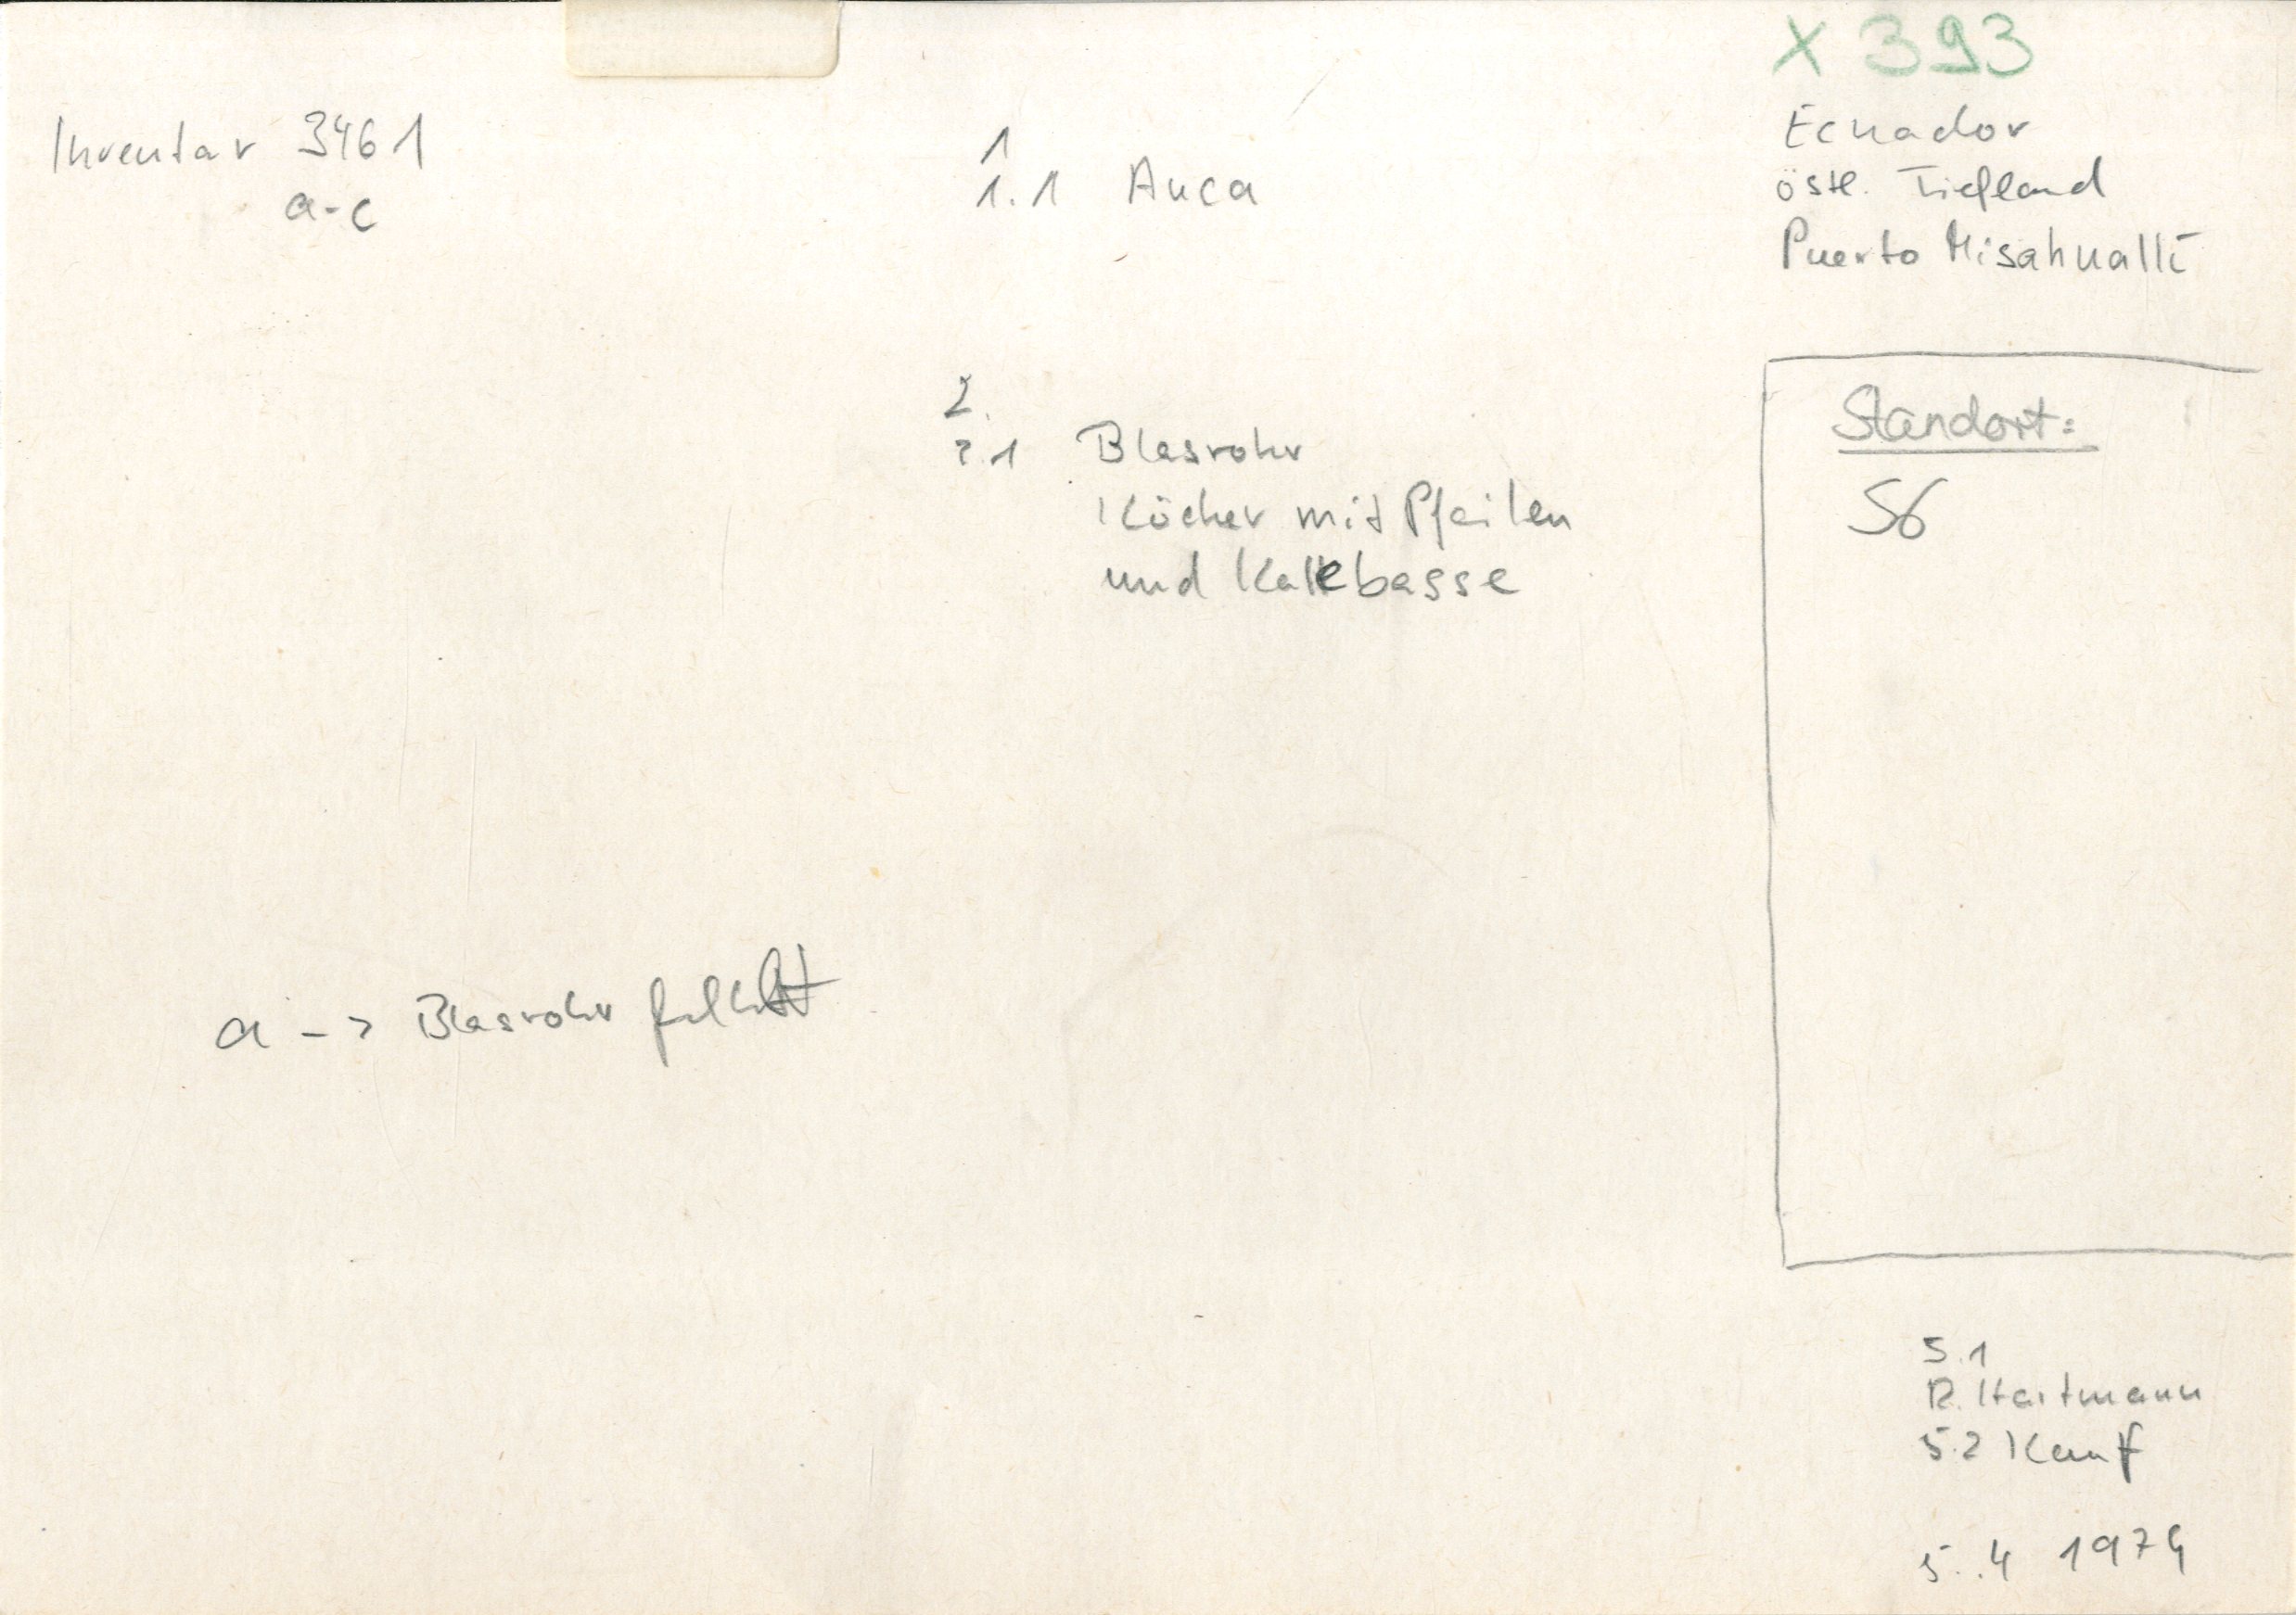 X 393
Inventar 3461
a-c
1
1.1 Auca
Ecuador
östl. Tiefland
Puerto Misahuallí
2.
2.1 Blasrohr
Köcher mit Pfeilen
und Kalebasse
Standort:
S6
a -> Blasrohr
5.1
R. Hartmann
5.2 Kauf
5.4 1974